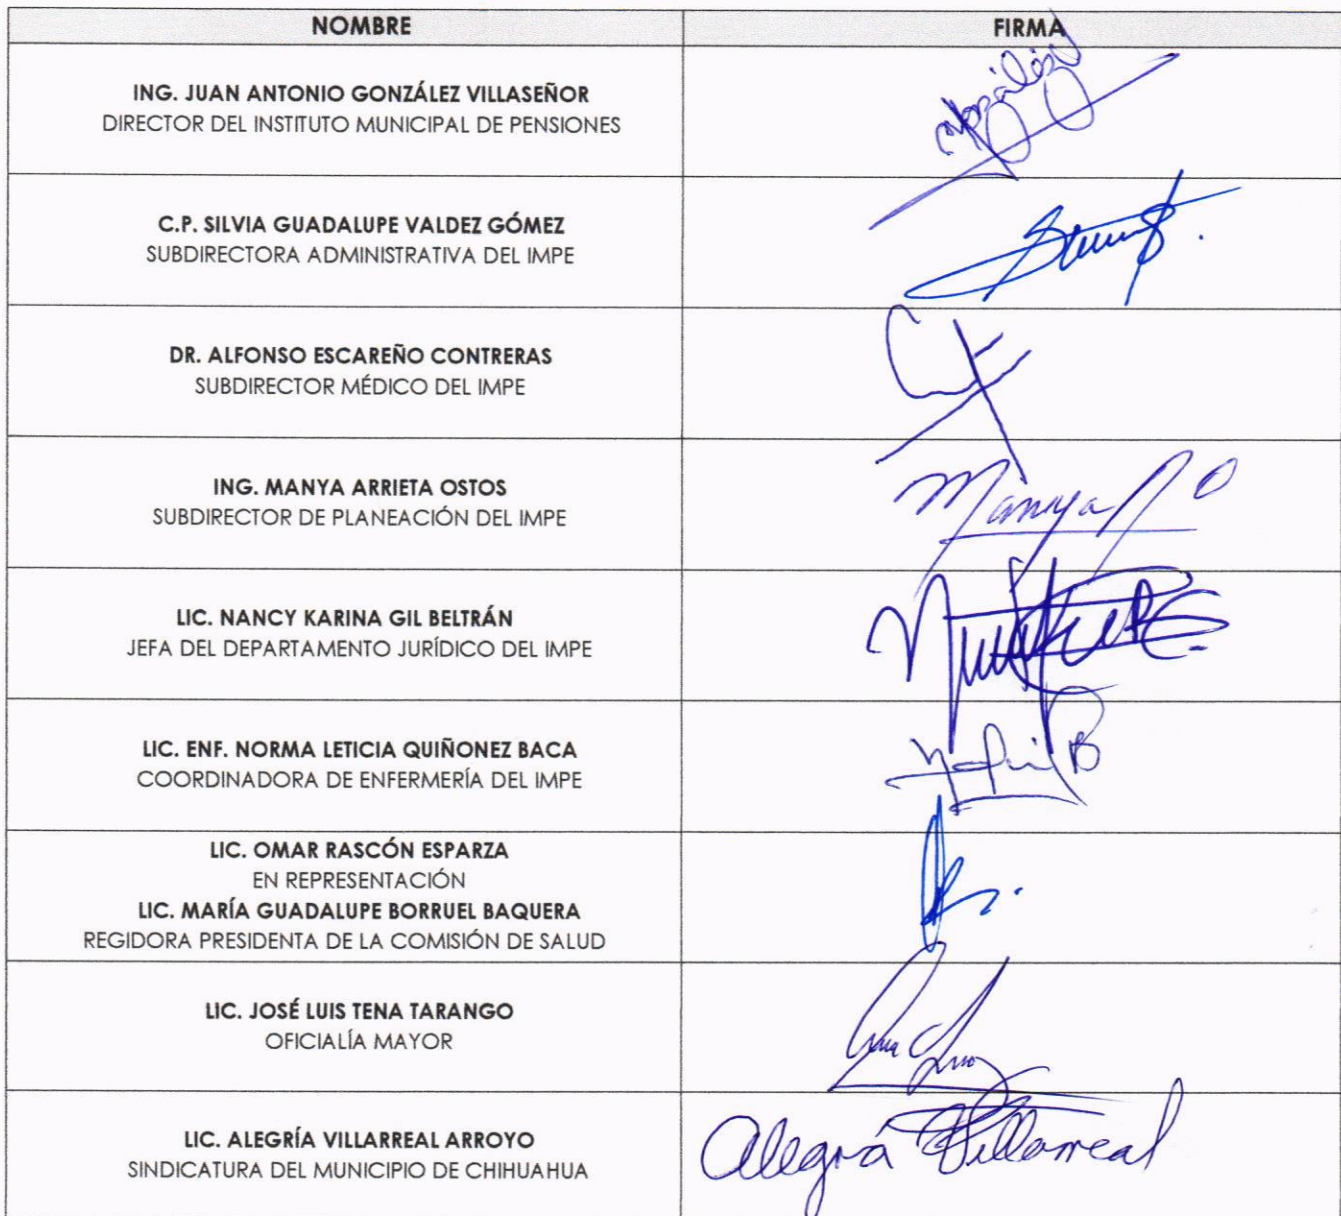 NOMBRE FIRMA
ING. JUAN ANTONIO GONZÁLEZ VILLASEÑOR
DIRECTOR DEL INSTITUTO MUNICIPAL DE PENSIONES
C.P. SILVIA GUADALUPE VALDEZ GÓMEZ
SUBDIRECTORA ADMINISTRATIVA DEL IMPE
DR. ALFONSO ESCAREÑO CONTRERAS
SUBDIRECTOR MÉDICO DEL IMPE
ING. MANYA ARRIETA OSTOS
SUBDIRECTOR DE PLANEACIÓN DEL IMPE
Manya
LIC. NANCY KARINA GIL BELTRÁN
JEFA DEL DEPARTAMENTO JURÍDICO DEL IMPE
LIC. ENF. NORMA LETICIA QUIÑONEZ BACA
COORDINADORA DE ENFERMERÍA DEL IMPE
LIC. OMAR RASCÓN ESPARZA
EN REPRESENTACIÓN
LIC. MARÍA GUADALUPE BORRUEL BAQUERA
REGIDORA PRESIDENTA DE LA COMISIÓN DE SALUD
LIC. JOSÉ LUIS TENA TARANGO
OFICIALÍA MAYOR
LIC. ALEGRÍA VILLARREAL ARROYO
SINDICATURA DEL MUNICIPIO DE CHIHUAHUA
Alegría Villarreal